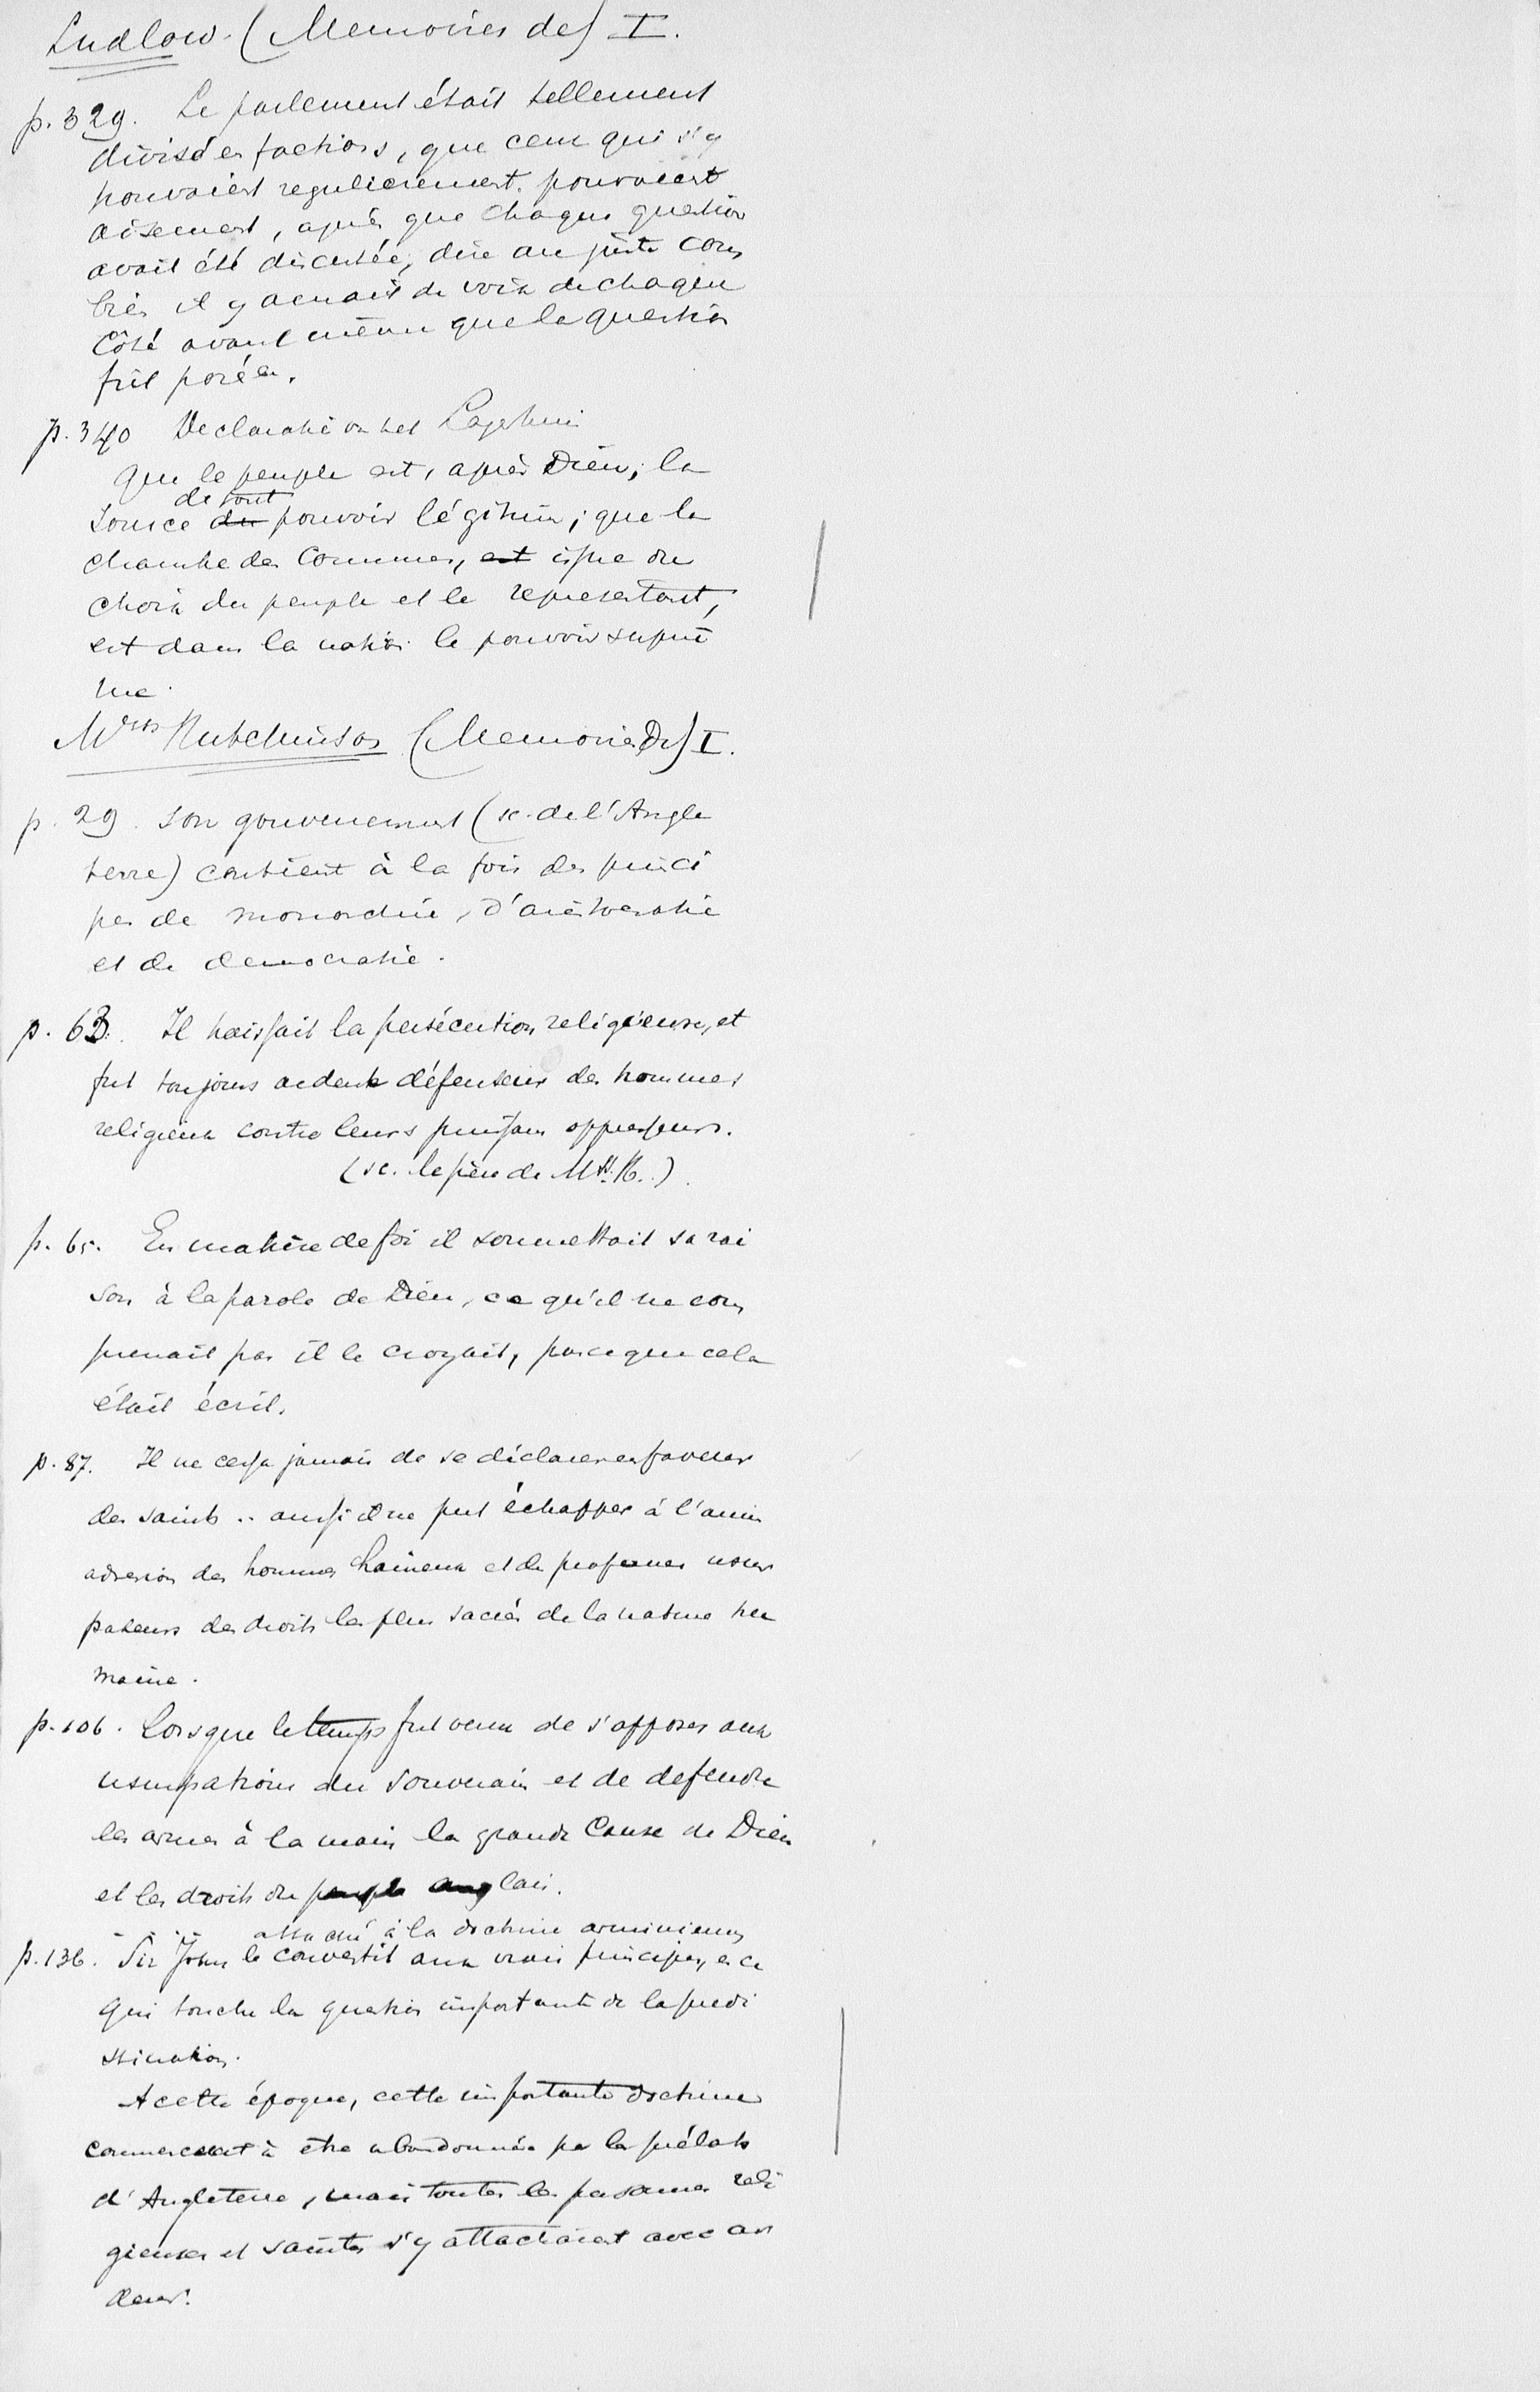 Ludlow. (Memoires de) I.
p. 329. Le parlement était tellement
divisé en factions, que ceux qui s'y
trouvaient regulierement pouvaient
aisement, après que chaque question
avait été discutée, dire au juste com
bien il y aurait de voix de chaque
côté avant même que la question
fut posée.
p. 340 Declaration
Que le peuple est, après Dieu, la
de tout
source du pouvoir légitime; que la
chambre des Communes, est issue du
choix du peuple et le representant,
est dans la nation le pouvoir suprê
me.
Mrss Hutchinson (Memoires De) I.
p. 29. Son gouvernement (sc. de l'Angle
terre) contient à la fois des princi
pes de monarchie, d'aristocratie
et de democratie.
p. 63. Il haissait la persécution religieuse, et
fut toujours ardent défenseur des hommes
religieux contre leurs puissans oppresseurs.
(sc. le père de Mss. H.)
p. 65. En matière de foi il soumettait sa rai
son à la parole de Dieu, ce qu'il ne com
prenait pas il le croyait, parceque cela
était écrit.
p. 87. Il ne cessa jamais de se déclarer en faveur
des saints .. aussi il ne put échapper à l'anim
adversion des hommes haineux et de profanes usur
pateurs des droits les plus sacrés de la nature hu
maine.
p. 106. Lorsque le temps fut venu de s'opposer aux
usurpations du souverain et de defendre
les armes à la main la grande Cause de Dieu
et les droits du peuple anglais.
attaché à la doctrine arminienne
p. 136. Sir John le convertit aux vrais principes, en ce
qui touche la question importante de la prede
stination.
A cette époque, cette importante doctrine
commencait à être abandonnée par les prélats
d'Angleterre, mais toutes les personnes reli
gieuses et saintes s'y attachaient avec ar
deur.